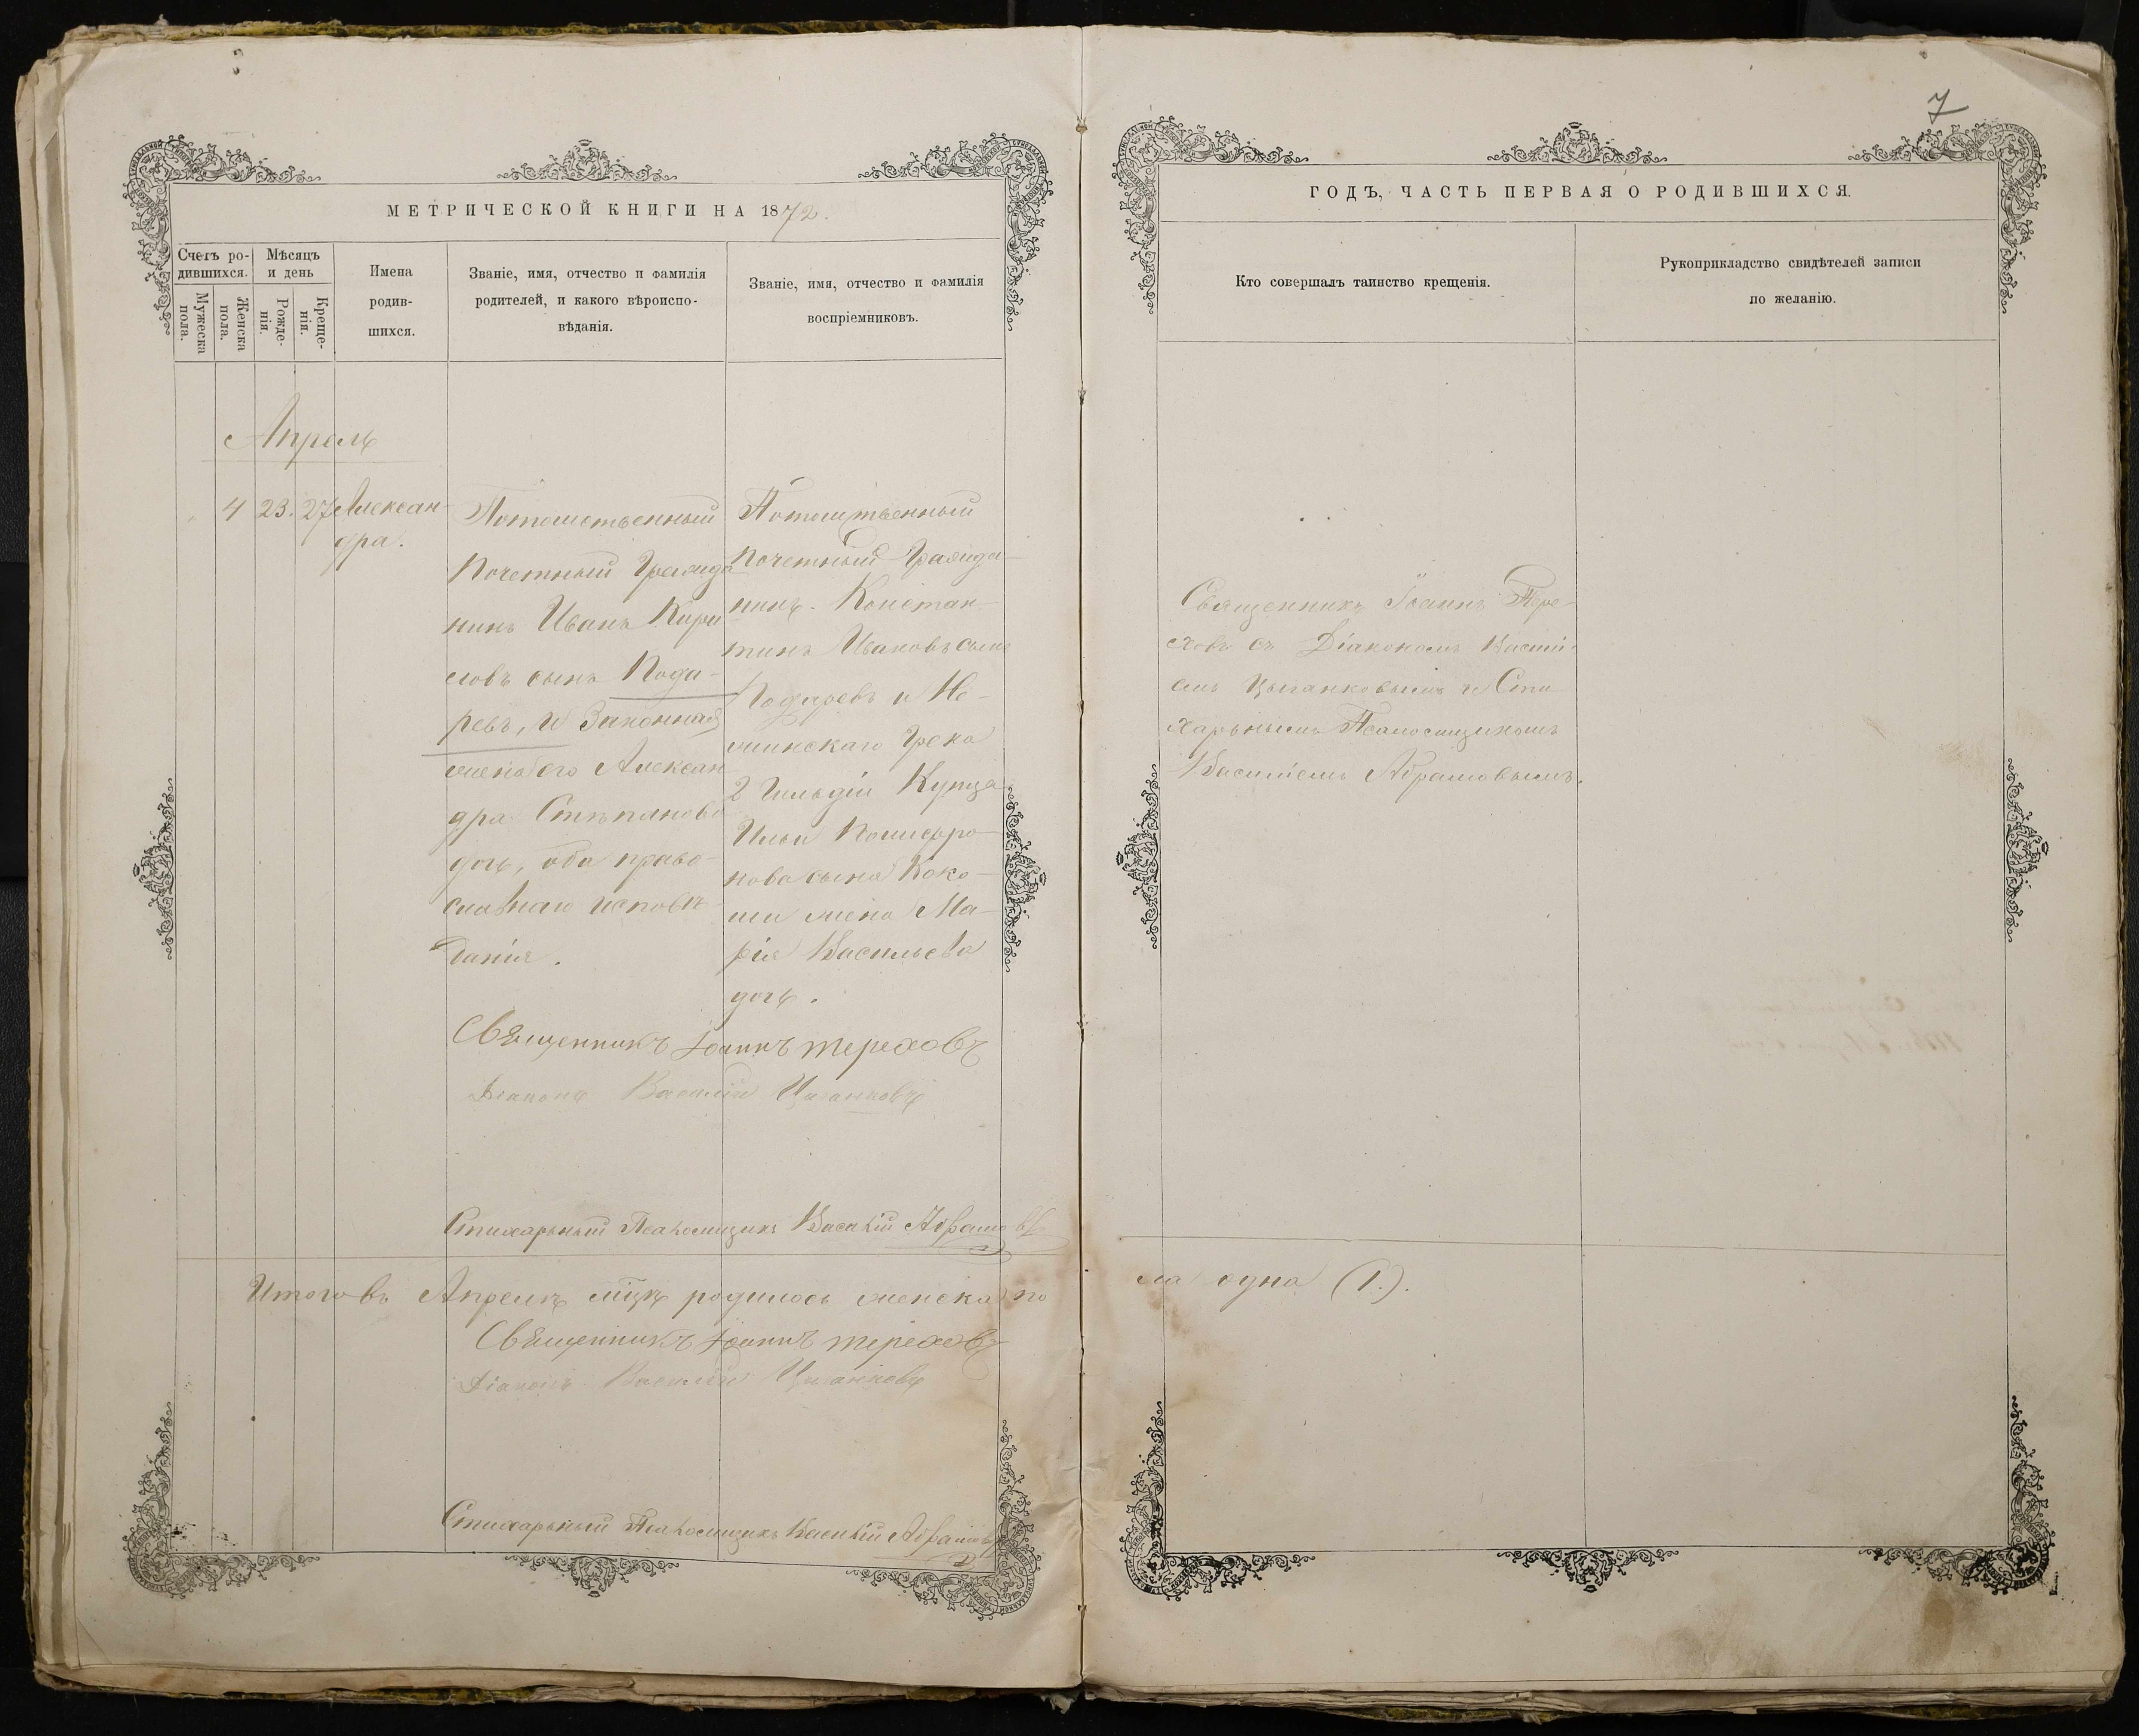 7
МЕТРИЧЕСКОЙ КНИГИ НА 1872.
Счетъ ро-
дившихся.
Мужеска
пола.
Женска
пола.
Мѣсяцъ
и день
Рожде-
нія.
Креще-
нія.
Имена
родив-
шихся.
Званіе, имя, отчество и фамилія
родителей, и какого вѣроиспо-
вѣданія.
Званіе, имя, отчество и фамилія
воспріемниковъ.
Апрель
4 23. 27 Алексан-
дра.
Потомственный
Почетный Гражда
нинъ Иванъ Кири
ловъ сынъ Пода-
ревъ, и Законная
жена его Алексан
дра Стѣпанова
дочь, оба право-
славнаго исповѣ-
данія.
Потомственный
почетный Гражда-
нинъ Констан-
тинъ Ивановъ сынъ
Подаревъ и Не-
жинскаго Грека
2 Гильдіи Купца
Ильи
нова сына Коко-
ли жена Ма-
рія Васильева
дочь.
Священникъ Іоаннъ Тереховъ
Діаконъ Василій Цыганковъ
Стихарьный Псаломщикъ Василій Абрамовъ
Итого въ Апрелѣ мцѣ родилось женска по
Священникъ Іоаннъ Тереховъ
Діаконъ Василій Цыганковъ
Стихарьный Псаломщикъ Василій Абрамовъ
ГОДЪ, ЧАСТЬ ПЕРВАЯ О РОДИВШИХСЯ.
Кто совершалъ таинство крещенія.
Рукоприкладство свидѣтелей записи
по желанію.
Священникъ Іоаннъ Тере-
ховъ съ Діакономъ Василі-
емъ Цыганковымъ и Сти
харьнымъ Псаломщикомъ
Василіемъ Абрамовымъ.
ла одна (1.).